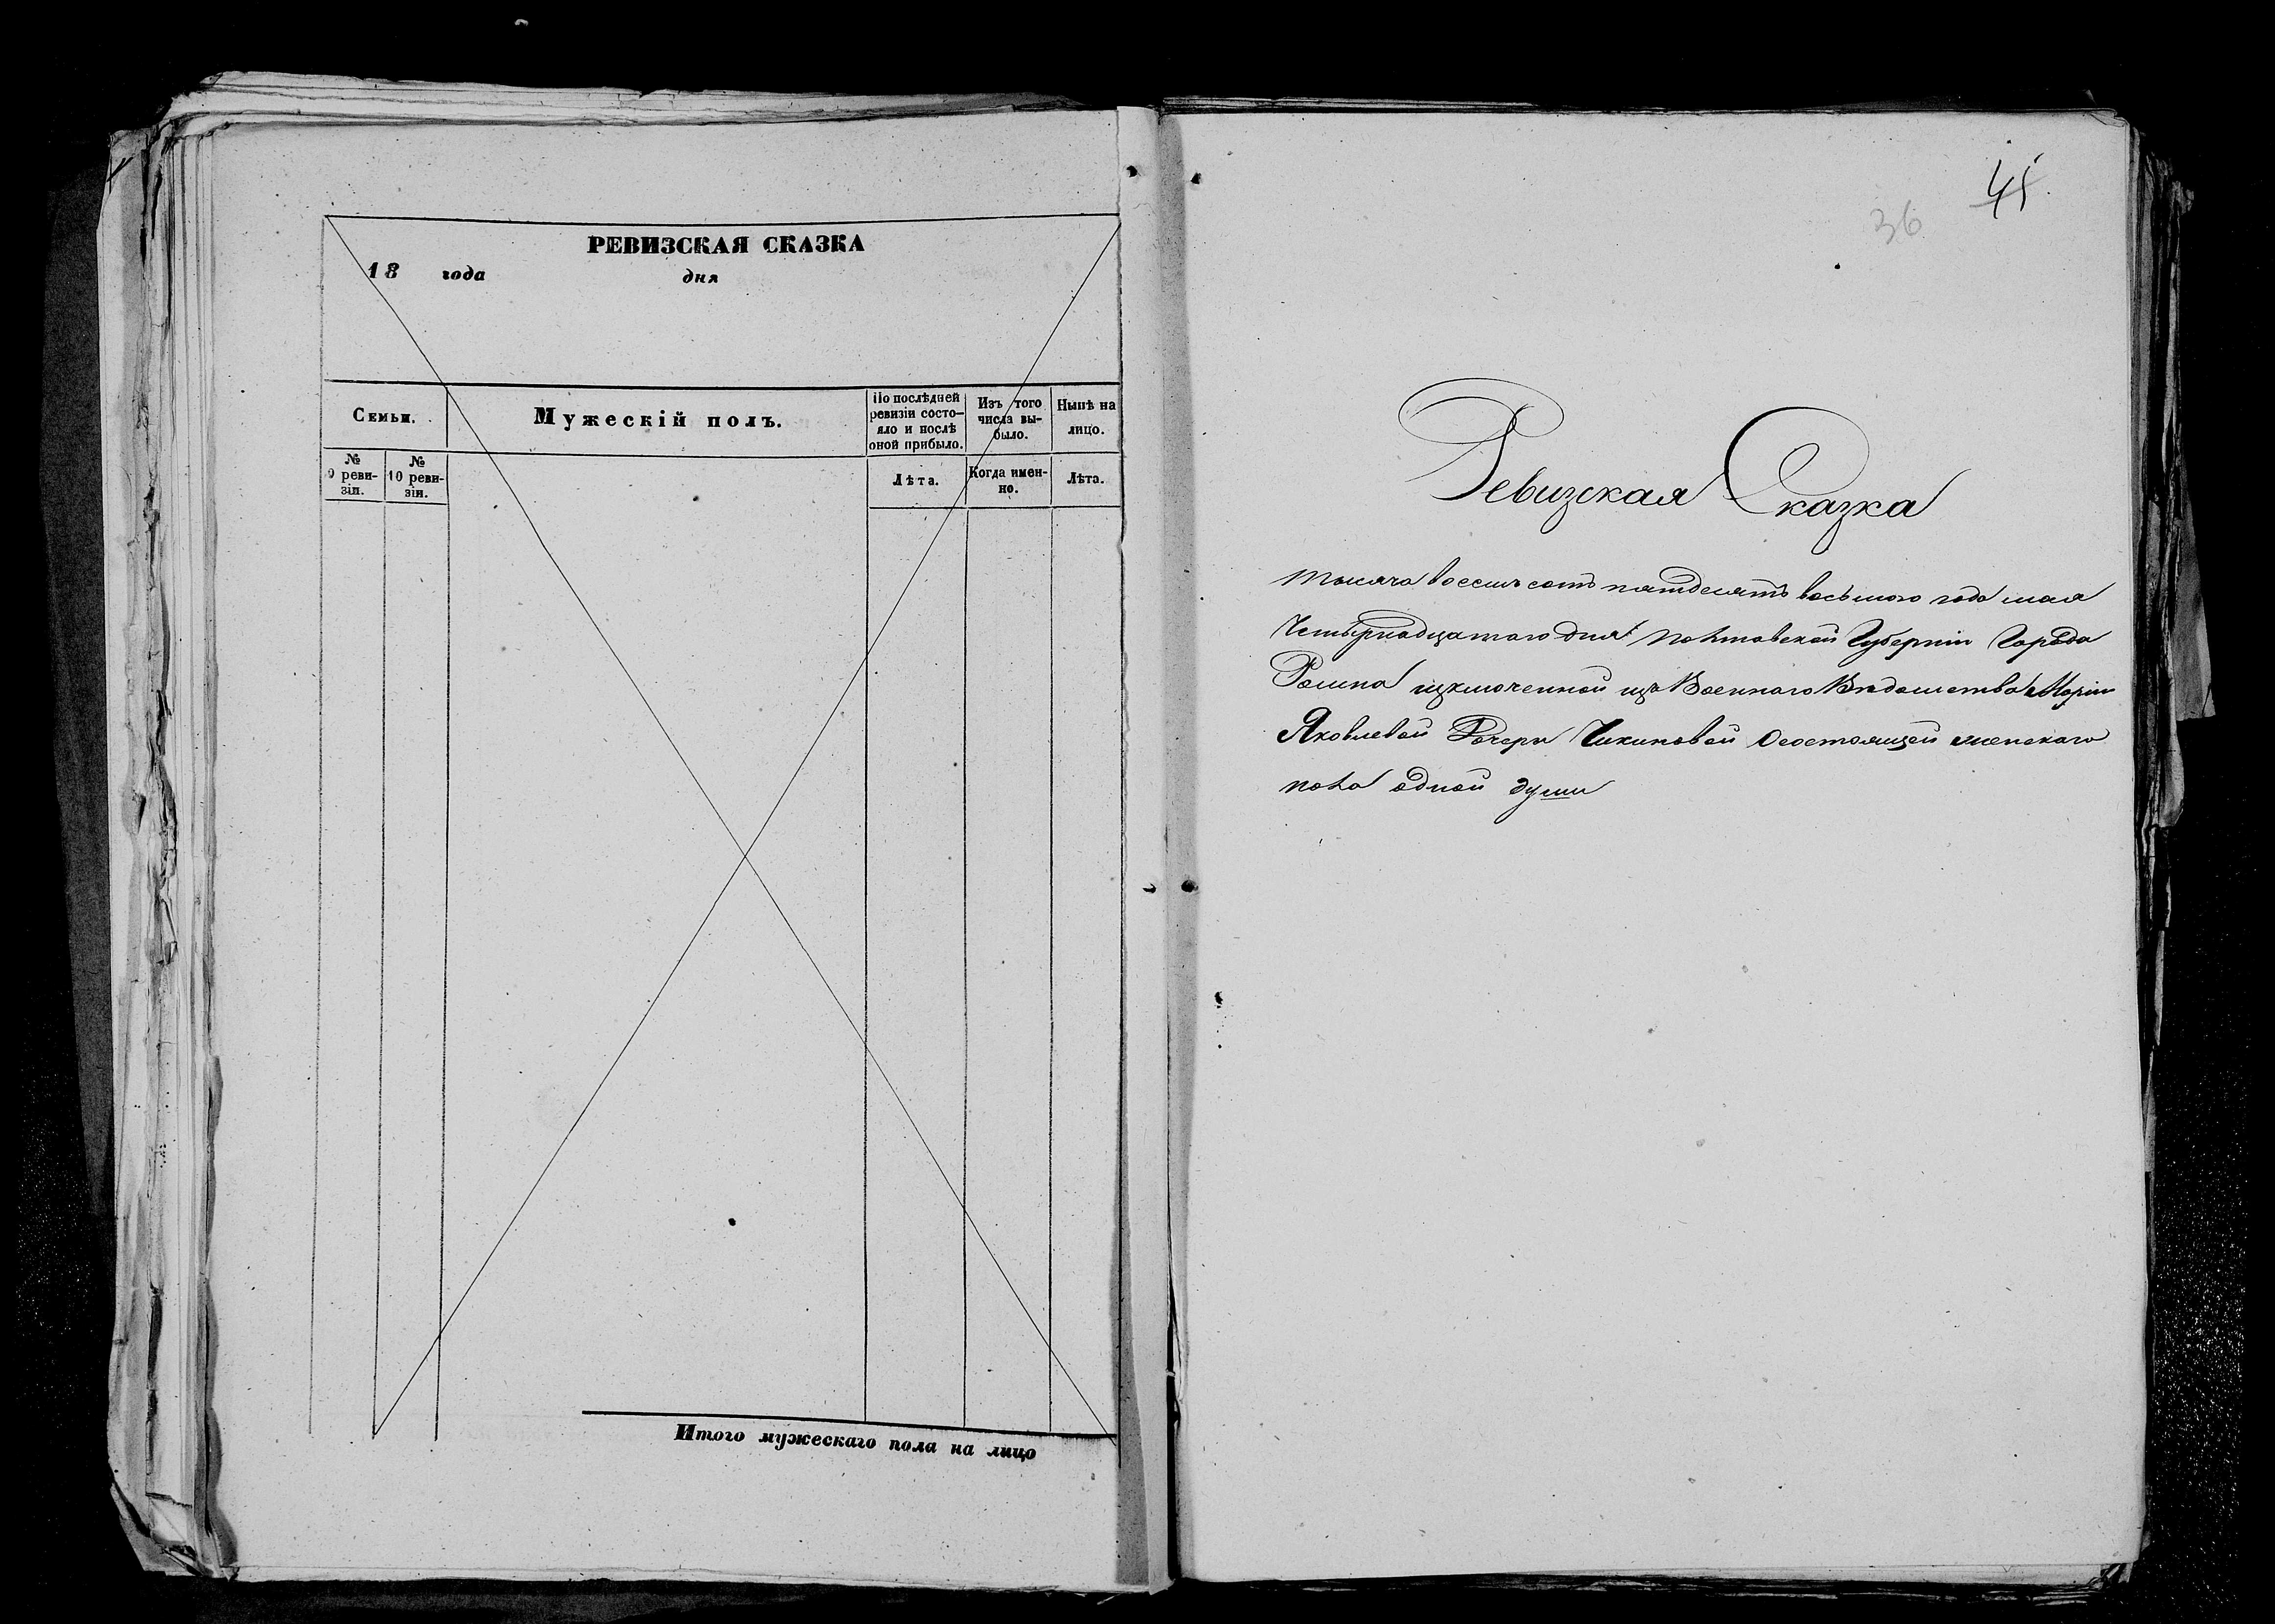 РЕВИЗСКАЯ СКАЗКА
18 года дня
Семьи.
Мужескій полъ.
По послѣдней ревизіи состо-
яло и послѣ
оной прибыло.
Изъ того
числа вы-
было.
Нынѣ на
лицо.
№
9 реви-
зіи.
№
10 реви-
зіи.
Лѣта.
Когда имен-
но.
Лѣта.
Итого мужескаго пола на лицо
45
36
Ревизская Сказка
тысяча восемь сотъ пятдесятъ восьмого года мая
Четырнадцатого дня Полтавской Губерніи Города
Ромна изключенной изъ Военного Вѣдомства Маріи
Яковлевой Дочери Чикиновой Осостоящей женскаго
пола одной души